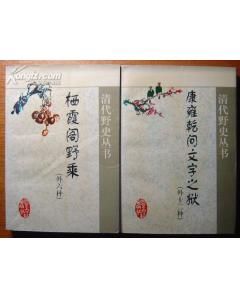 清代野史丛书
栖霞阁野乘
(外六种)
清代野史丛书
康雍乾间文字之狱
(外十二种)